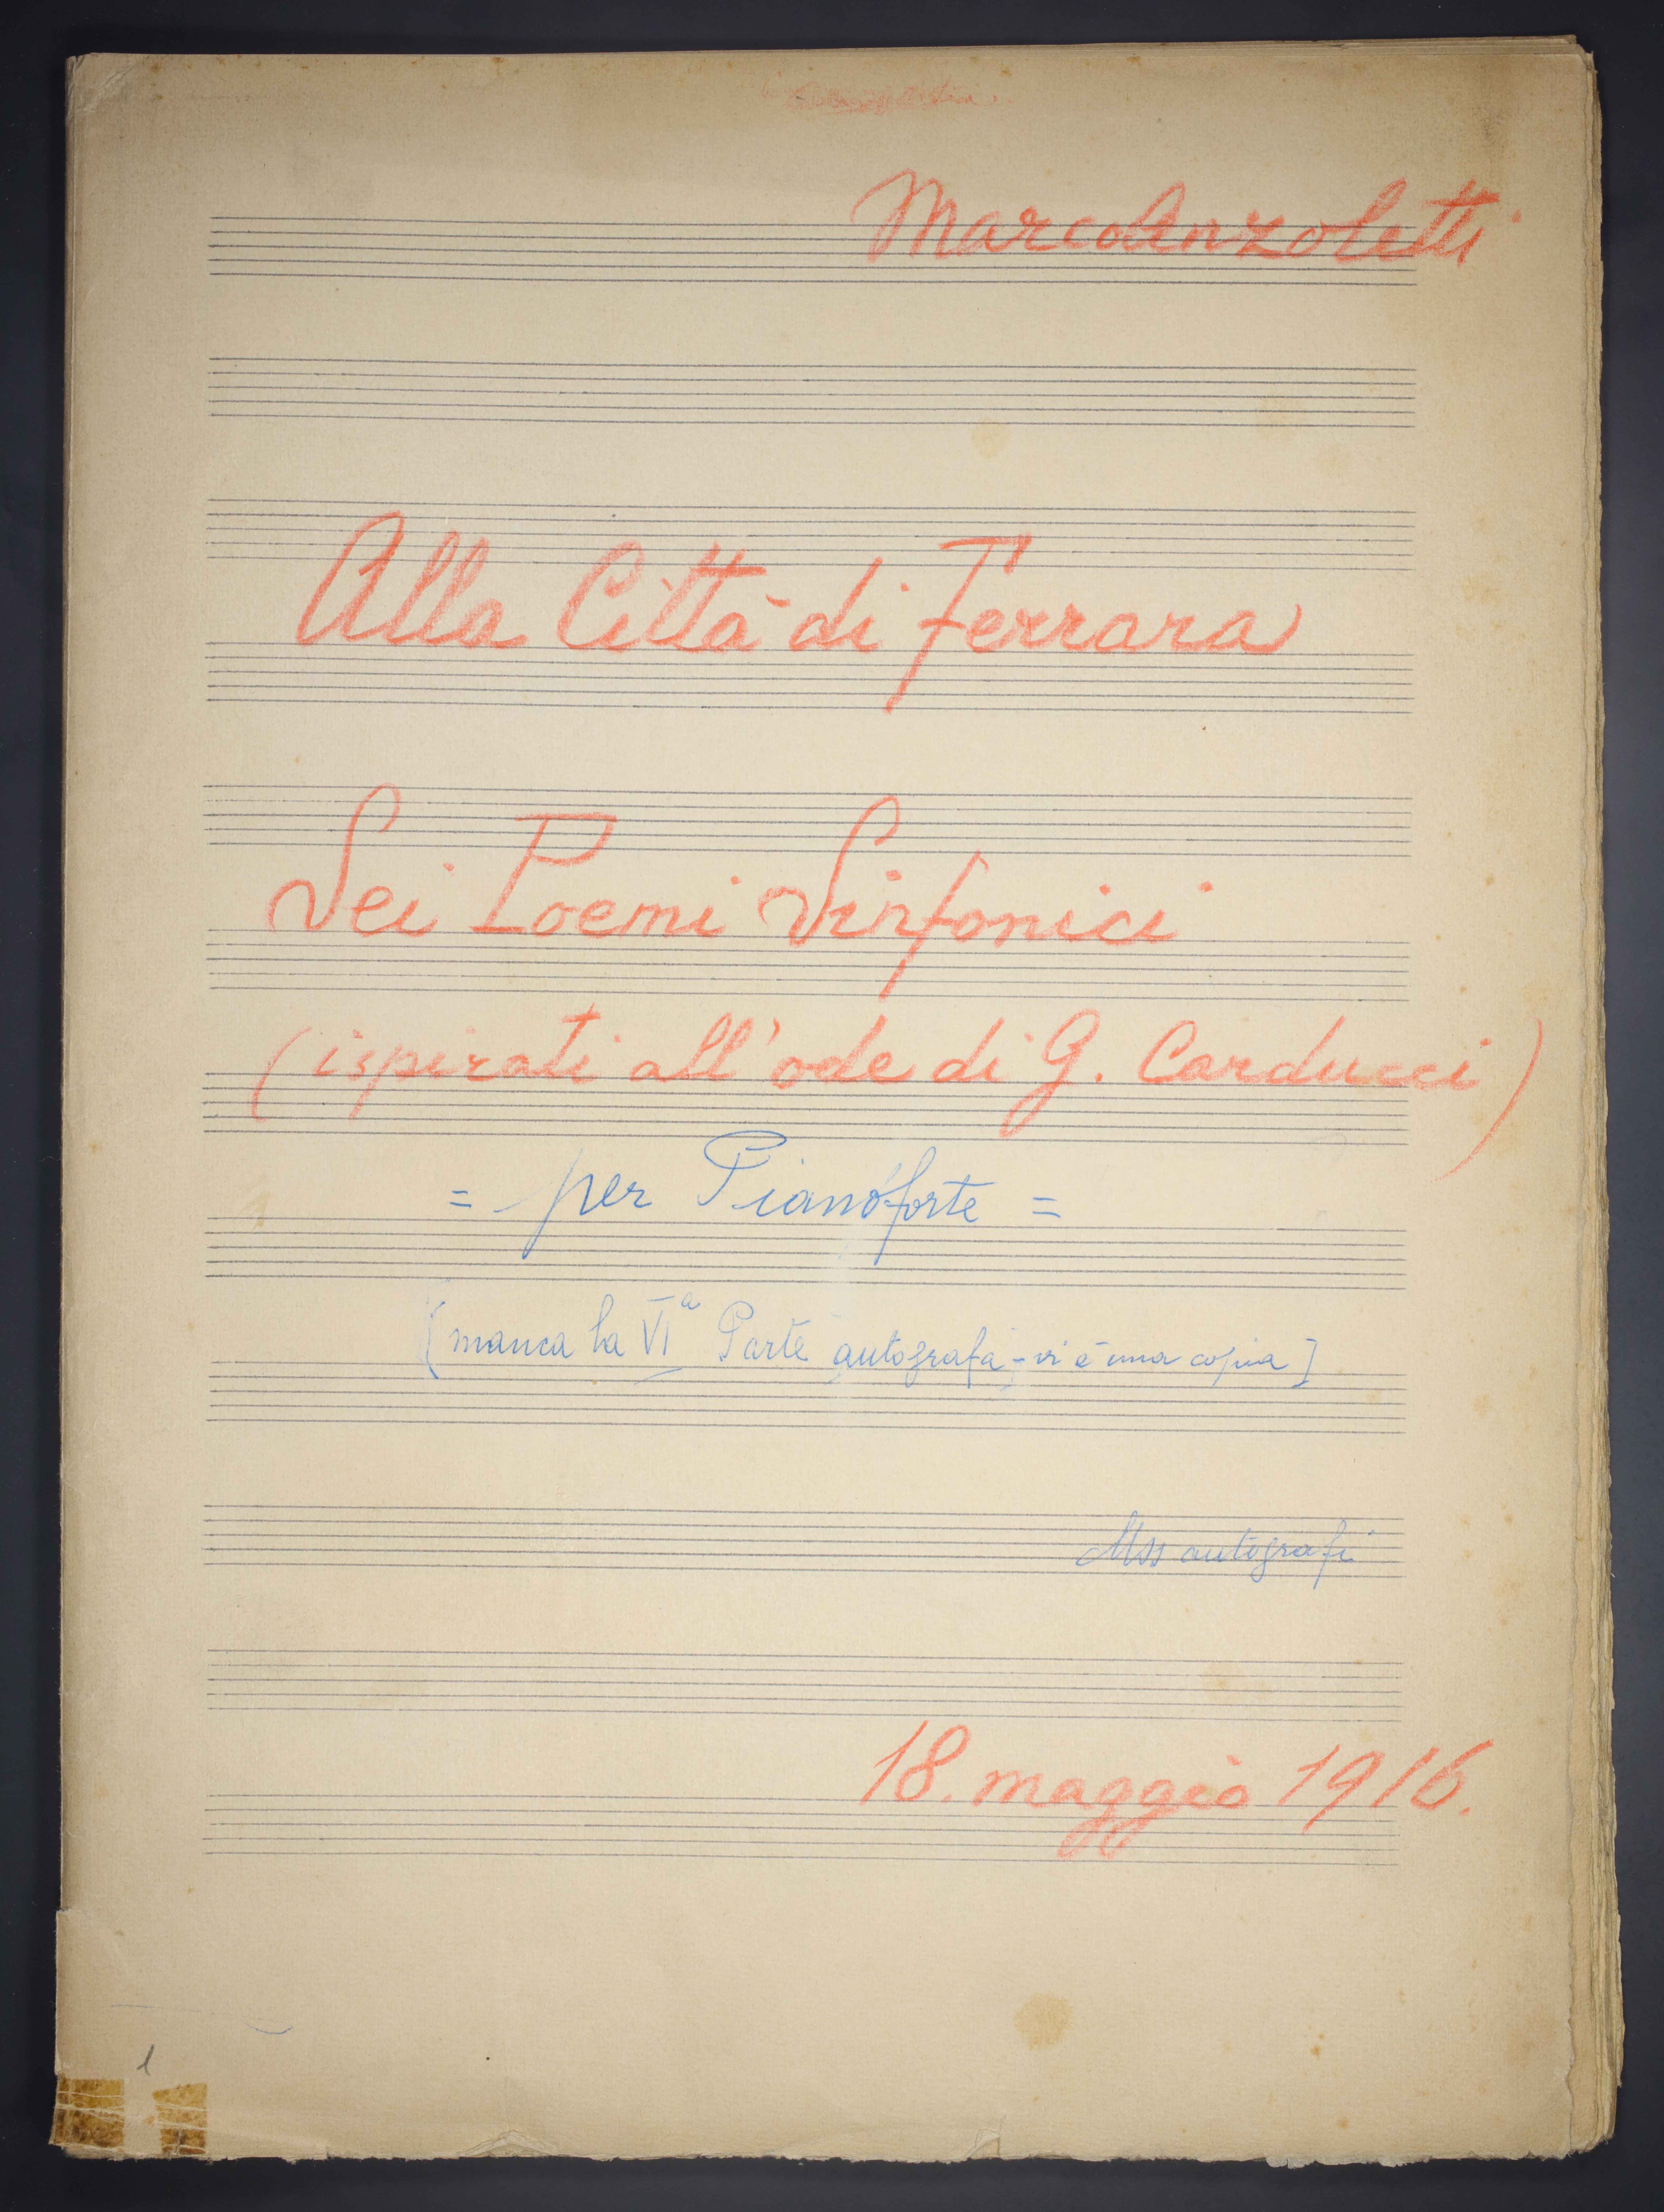 Marco Anzoletti
Alla Città di Ferrara
Sei Poemi Sinfonici
(ispirati all'ode di G. Carducci)
= per Pianoforte =
[manca la VIª Parte autografa - vi è una copia]
Mss autografi
18. maggio 1916.
1